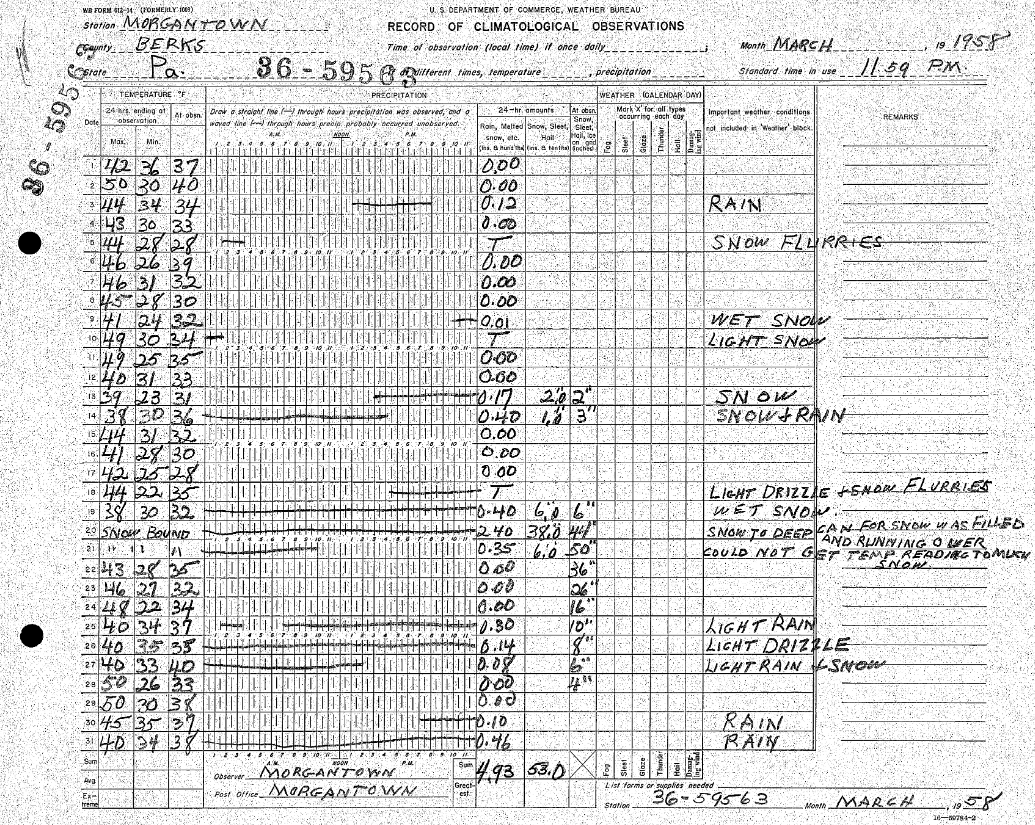 WB FORM 612-14 (FORMERLY 1009)
U. S. DEPARTMENT OF COMMERCE, WEATHER BUREAU
RECORD OF CLIMATOLOGICAL OBSERVATIONS
Station MORGANTOWN
County BERKS
State Pa.
36-59563
36-59563
Time of observation (local time) if once daily ; if different times, temperature , precipitation
Month MARCH , 19 1958
Standard time in use 11 59 P.M.
Date
TEMPERATURE °F
24 hrs. ending at observation
At obsn.
Max. Min.
PRECIPITATION
Draw a straight line (—) through hours precipitation was observed, and a
waved line (~) through hours precip. probably occurred unobserved.
A.M. NOON P.M.
1 2 3 4 5 6 7 8 9 10 11 1 2 3 4 5 6 7 8 9 10 11
24-hr. amounts
At obsn.
Rain, Melted snow, etc. (ins. & hundths)
Snow, Sleet, Hail (ins. & tenths)
Snow, Sleet, Hail, Ice on gnd
WEATHER (CALENDAR DAY)
Mark 'X' for all types occurring each day
Fog Sleet Glaze Thunder Hail Damaging wind
Important weather conditions not included in 'Weather' block.
REMARKS
42 36 37 0.00
2 50 30 40 0.00
3 44 34 34 0.12 RAIN
4 43 30 33 0.00
5 44 28 28 T SNOW FLURRIES
6 46 26 39 0.00
7 46 31 32 0.00
8 45 28 30 0.00
9 41 24 32 0.01 WET SNOW
10 49 30 34 T LIGHT SNOW
11 49 25 35 0.00
12 40 31 33 0.00
13 39 23 31 0.17 2.0 2" SNOW
14 38 30 36 0.40 1.0 3" SNOW & RAIN
15 44 31 32 0.00
16 41 28 30 0.00
17 42 25 28 0.00
18 44 22 35 T LIGHT DRIZZLE & SNOW FLURRIES
19 38 30 32 0.40 6.0 6" WET SNOW
20 SNOW BOUND 2.40 38.0 44" SNOW TO DEEP CAN FOR SNOW WAS FILLED AND RUNNING OVER
21 " " " 0.35 6.0 50" COULD NOT GET TEMP. READING TO MUCH SNOW
22 43 28 35 0.00 36"
23 46 27 32 0.00 26"
24 48 22 34 0.00 16"
25 40 34 37 0.30 10" LIGHT RAIN
26 40 35 35 0.14 8" LIGHT DRIZZLE
27 40 33 40 0.08 6" LIGHT RAIN & SNOW
28 50 26 33 0.00 4"
29 50 30 38 0.00
30 45 35 37 0.10 RAIN
31 40 34 38 0.46 RAIN
Sum
Avg
Extreme
A.M. NOON P.M.
Observer MORGANTOWN
Post Office MORGANTOWN
Sum 4.93 53.0
Greatest
Fog Sleet Glaze Thunder Hail Damaging wind
List forms or supplies needed
Station 36-59563 Month MARCH , 19 58
16—59784-2